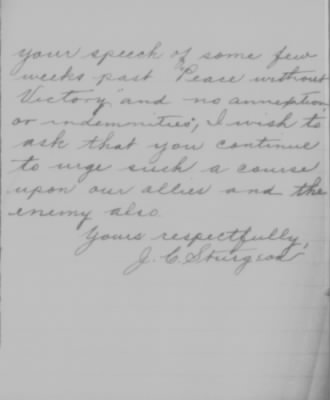 your speech of some few
weeks past "Peace without
Victory" and no annexation
or indemnities", I wish to
ask that you continue
to urge such a course
upon our allies and the
enemy also.
Yours respectfully,
J. C. Sturgeon